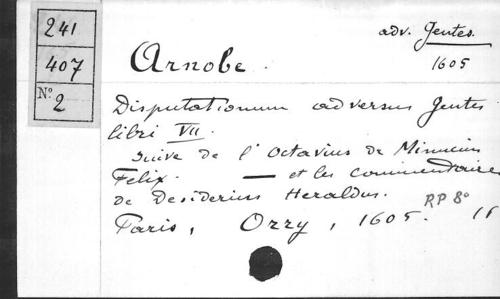 241
407
N.o 2
adv. Gentes.
Arnobe.
1605
Disputationum adversus Gentes
libri VII.
suive de l'Octavius de Minucius
Felix. — et les commentaires
de Desiderius Heraldus.
RP 8o
Paris, Orry, 1605.